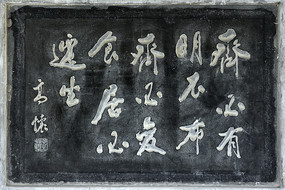 齊必有
明衣布
齊必变
食居必
遷坐
高